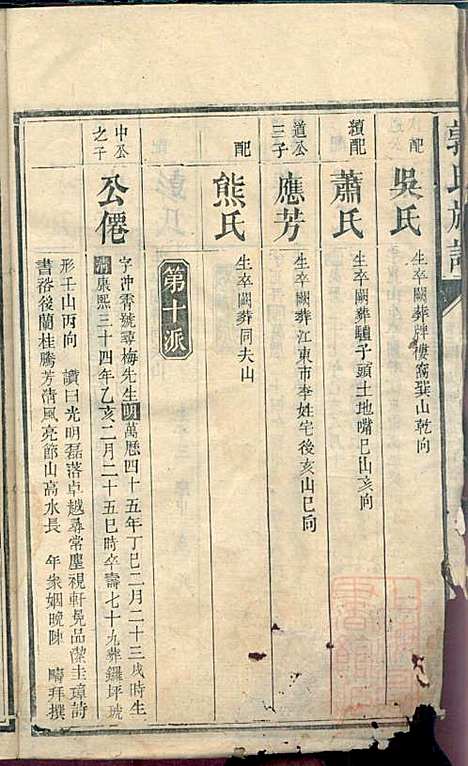 郭氏族譜
配
吳氏
生卒闕葬牌樓窩巽山乾向
續配
蕭氏
生卒闕葬驢子頭土地嘴巳山亥向
道公三子
應芳
生卒闕葬江東市李姓宅後亥山巳向
配
熊氏
生卒闕葬同夫山
第十派
中公之子
公僊
字沖霄號尋梅先生明萬歷四十五年丁巳二月二十三戌時生
清康熙三十四年乙亥二月二十五巳時卒壽七十九葬鑼坪琥
形壬山丙向 讚曰光明磊落卓越尋常塵視軒冕品潔圭璋詩
書裕後蘭桂騰芳清風亮節山高水長 年眾姻晚陳 疇拜撰